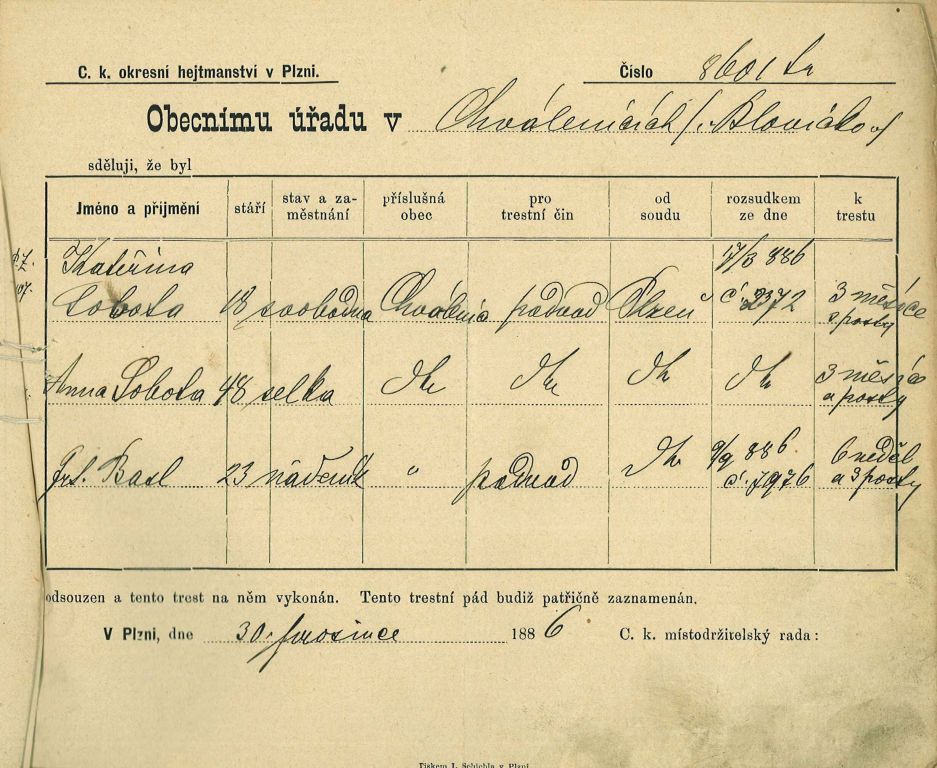 C. k. okresní hejtmanství v Plzni.
Číslo 8601
Obecnímu úřadu v Chválenicích
sděluji, že byl
Jméno a příjmění stáří stav a za-městnání příslušná obec pro trestní čin od soudu rozsudkem ze dne k trestu
Kateřina 17/3 886
Sobota 18 svobodna podvod Plzeň č. 2372 3 měsíce
a posty
Anna Sobota 48 selka dto dto dto dto 3 měsíc
a posty
Basl 23 nádeník " podvod dto 9/9 886 6 neděl
č. 7976 a 3 posty
odsouzen a tento trest na něm vykonán. Tento trestní pád budiž patřičně zaznamenán.
V Plzni, dne 30. prosince 1886 C. k. místodržitelský rada:
Tiskem I. Schiebla v Plzni.